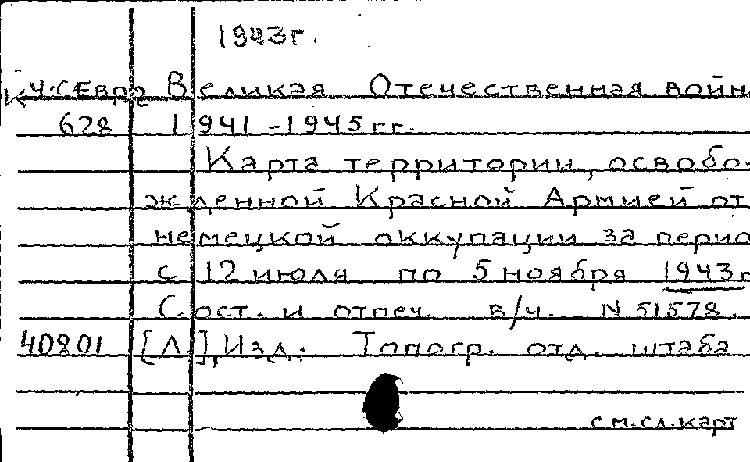 1943г.
К Ч.СЕвро Великая Отечественная войн
628 1941-1945гг.
Карта территории, освобо-
жденной Красной Армией от
немецкой оккупации за перио
с 12 июля по 5 ноября 1943г
Сост. и отпеч. в/ч. N 51578.
40801 [Л], Изд. Топогр. отд. штаба
см.сл.карт